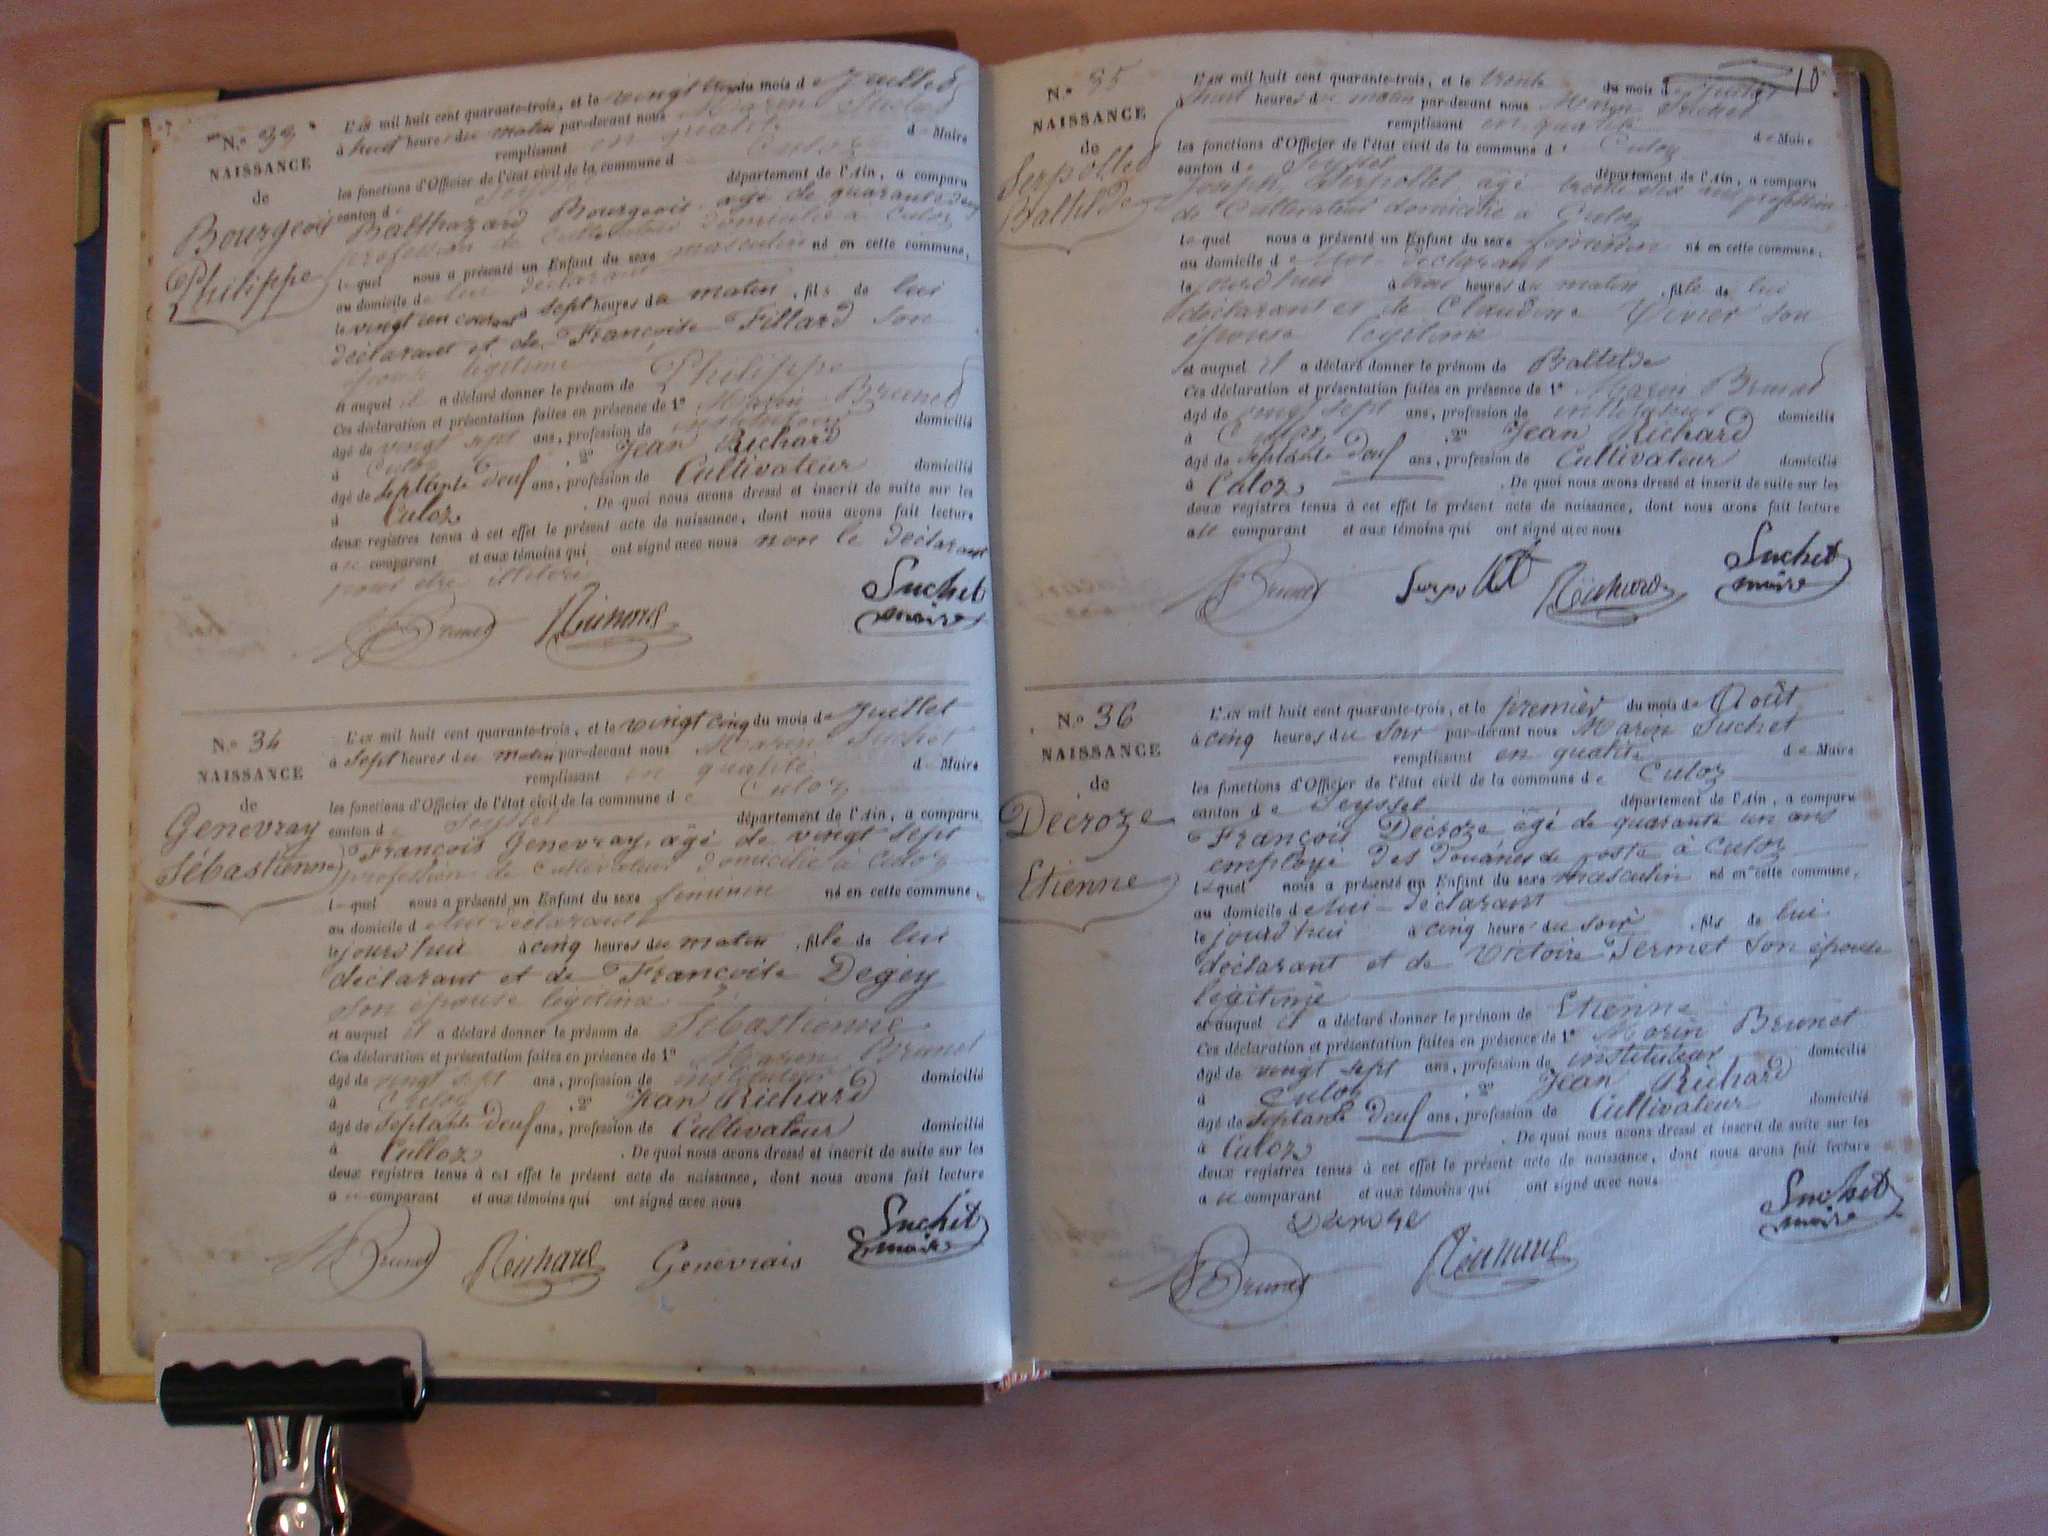 N.º 33
NAISSANCE
de
Bourgeois
Philippe
L'an mil huit cent quarante-trois, et le vingt deux du mois de Juillet
à huit heures du matin par-devant nous Marin Suchet
remplissant en qualité de Maire
les fonctions d'Officier de l'état civil de la commune d Culoz
canton de Seyssel département de l'Ain, a comparu
Balthazard Bourgeois, agé de quarante
profession de Cultivateur domicilié à Culoz
lequel nous a présenté un Enfant du sexe masculin né en cette commune,
au domicile de lui déclarant
le vingt un courant à sept heures du matin, fils de lui
déclarant et de Françoise Fillard son
épouse légitime
et auquel il a déclaré donner le prénom de Philippe
Ces déclaration et présentation faites en présence de 1º Marin Brunet
âgé de vingt sept ans, profession de instituteur domicilié
à Culoz, 2º Jean Richard
âgé de septante deuf ans, profession de Cultivateur domicilié
à Culoz. De quoi nous avons dressé et inscrit de suite sur les
deux registres tenus à cet effet le présent acte de naissance, dont nous avons fait lecture
au comparant et aux témoins qui ont signé avec nous non le déclarant
pour être
Brunet Richard Suchet
maire
N.º 34
NAISSANCE
de
Genevray
Sébastienne
L'an mil huit cent quarante-trois, et le vingt cinq du mois de Juillet
à sept heures du matin par-devant nous Marin Suchet
remplissant en qualité de Maire
les fonctions d'Officier de l'état civil de la commune de Culoz
canton de Seyssel département de l'Ain, a comparu
François Genevray, agé de vingt sept
profession de Cultivateur domicilié à Culoz
lequel nous a présenté un Enfant du sexe feminin né en cette commune,
au domicile de lui déclarant
le jourd'hui à cinq heures du matin, fille de lui
déclarant et de Françoise Degey
son épouse légitime
et auquel il a déclaré donner le prénom de Sébastienne
Ces déclaration et présentation faites en présence de 1º Marin Brunet
âgé de vingt sept ans, profession de instituteur domicilié
à Culoz, 2º Jean Richard
âgé de septante deuf ans, profession de Cultivateur domicilié
à Culloz. De quoi nous avons dressé et inscrit de suite sur les
deux registres tenus à cet effet le présent acte de naissance, dont nous avons fait lecture
au comparant et aux témoins qui ont signé avec nous
Brunet Richard Genevrais Suchet
maire
10
N.º 35
NAISSANCE
de
Serpollet
Baltilde
L'an mil huit cent quarante-trois, et le trente du mois de Juillet
à huit heures du matin par-devant nous Marin Suchet
remplissant en qualité de Maire
les fonctions d'Officier de l'état civil de la commune de Culoz
canton de Seyssel département de l'Ain, a comparu
Joseph Serpollet, agé trente six ans profession
de Cultivateur domicilié à Culoz
lequel nous a présenté un Enfant du sexe feminin né en cette commune,
au domicile de lui déclarant
le jourd'hui à trois heures du matin, fille de lui
déclarant et de Claudine Vivier son
épouse légitime
et auquel il a déclaré donner le prénom de Baltilde
Ces déclaration et présentation faites en présence de 1º Marin Brunet
âgé de vingt sept ans, profession de instituteur domicilié
à Culoz, 2º Jean Richard
âgé de septante deuf ans, profession de Cultivateur domicilié
à Culoz. De quoi nous avons dressé et inscrit de suite sur les
deux registres tenus à cet effet le présent acte de naissance, dont nous avons fait lecture
au comparant et aux témoins qui ont signé avec nous
Brunet Serpollet Richard Suchet
maire
N.º 36
NAISSANCE
de
Decroze
Etienne
L'an mil huit cent quarante-trois, et le premier du mois de Août
à cinq heures du soir par-devant nous Marin Suchet
remplissant en qualité de Maire
les fonctions d'Officier de l'état civil de la commune de Culoz
canton de Seyssel département de l'Ain, a comparu
François Decroze âgé de quarante un ans
employé des Douanes de poste à Culoz
lequel nous a présenté un Enfant du sexe masculin né en cette commune,
au domicile de lui déclarant
le jourd'hui à cinq heures du soir, fils de lui
déclarant et de Victoire Termet son épouse
légitime
et auquel il a déclaré donner le prénom de Etienne
Ces déclaration et présentation faites en présence de 1º Marin Brunet
âgé de vingt sept ans, profession de instituteur domicilié
à Culoz, 2º Jean Richard
âgé de septante deuf ans, profession de Cultivateur domicilié
à Culoz. De quoi nous avons dressé et inscrit de suite sur les
deux registres tenus à cet effet le présent acte de naissance, dont nous avons fait lecture
au comparant et aux témoins qui ont signé avec nous
Decroze Suchet
maire
Brunet Richard